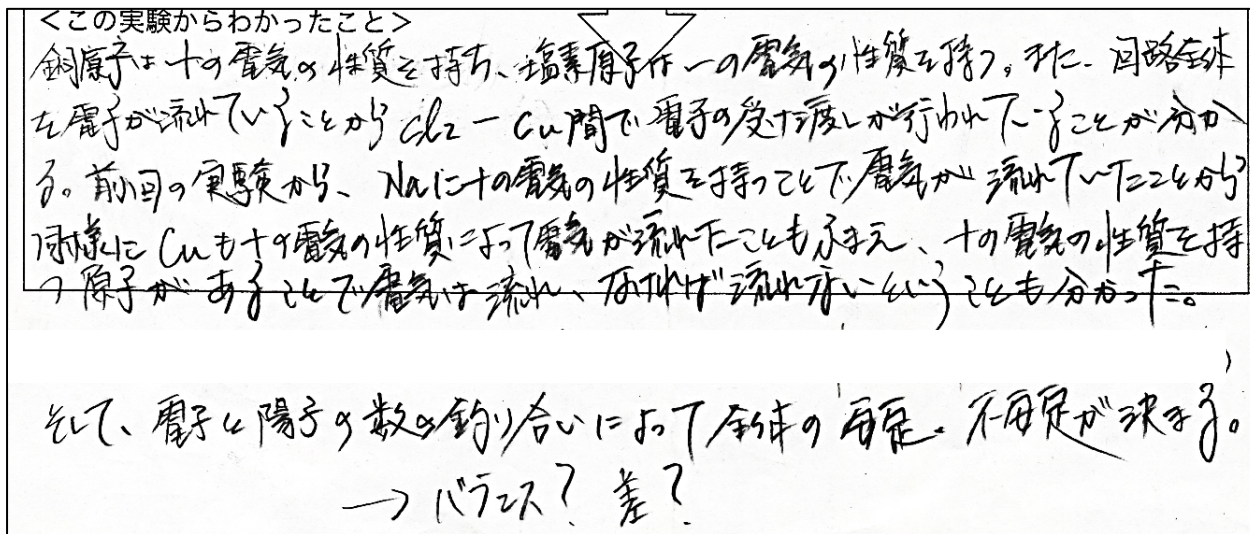 <この実験からわかったこと>
銅原子は+の電気の性質を持ち、塩素原子は-の電気の性質を持つ。また、回路全体
を電子が流れていることからCl2-Cu間で電子の受け渡しが行われていることが分か
る。前回の実験から、Naに+の電気の性質を持つことで電気が流れていたことから
同様にCuも+の電気の性質によって電気が流れたこともふまえ、+の電気の性質を持
つ原子があることで電気は流れ、なければ流れないということも分かった。
そして、電子と陽子の数の釣り合いによって全体の安定・不安定が決まる。
→バランス?差?